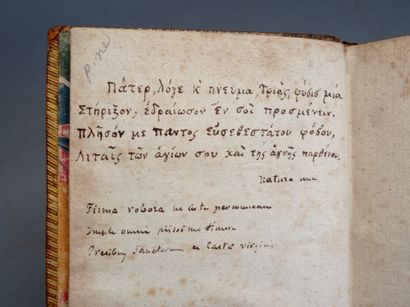 p.ne
Πάτερ, λόγε κ' πνευμα, Τριάς, φύσις μια
Στήριξον, ἑδραίωσον ἐν σοὶ προσμένειν.
Πλῆσόν με παντος εὐσεβεστάτου φόβου,
Λιταῖς τῶν ἁγίων σου καὶ τῆς ἁγνῆς παρθένου.
Natura una
Firma robora in te permanean
Imple omni piissimo timore
Precibus Sanctorum et Castæ virginis